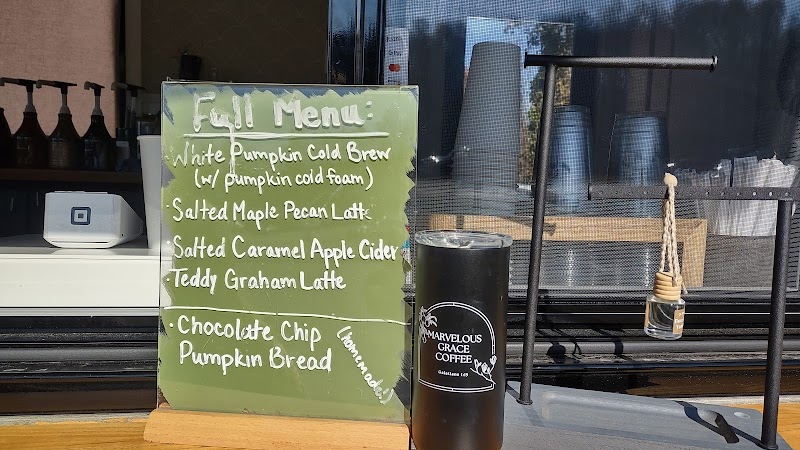 Fall Menu:
White Pumpkin Cold Brew
(w/ pumpkin cold foam)
· Salted Maple Pecan Latte
· Salted Caramel Apple Cider
· Teddy Graham Latte
· Chocolate Chip
Pumpkin Bread
(homemade!)
MARVELOUS
GRACE
COFFEE